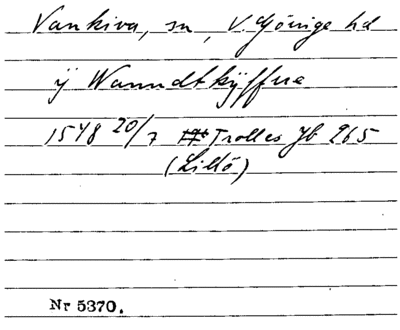 Vankiva, sn, V. Göinge hd
ÿ Wanndtkÿffua
1548 20/7 Trolles Jb 265
(Lillö)
Nr 5370.